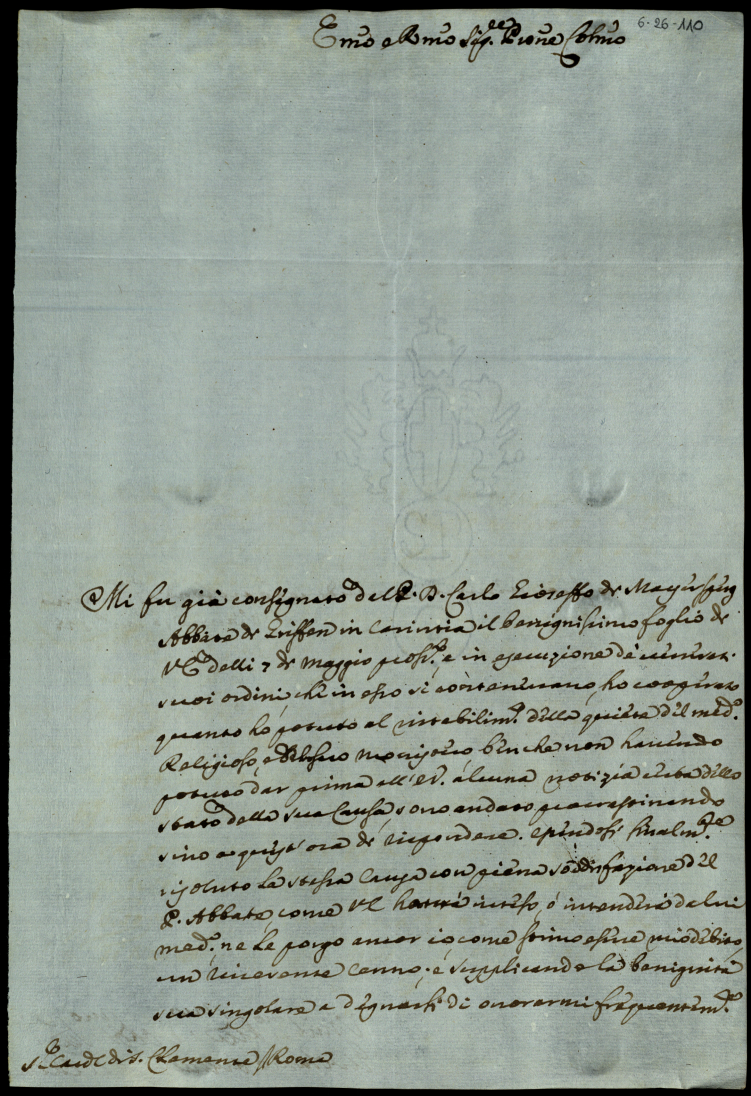 6-26-110
Emo e Rmo Sig.re Prone Colmo
Mi fu già consignato dal P. D. Carlo Gioseffo de
Abbate de Griffen in Carintia il benignissimo foglio de
VE delli 7 de Maggio pross.o e in esecuzione de
suoi ordini che in esso si contenevano, ho cooperato
quanto hò potuto al ristabilim.to della quiete del med.o
Religioso, e del suo benche non havendo
potuto dar prima all'E.V. alcuna notizia certa dello
stato della sua Causa, sono andato procrastinando
sino a quest'ora di rispondere. essendosi finalm.te
risoluto la stessa Causa con piena sodisfazione del
P. Abbate, come VE havrà inteso, ò intenderà da lui
med.o, ne le porgo ancor io come stimo essere mio debito
un riverente cenno; e supplicando la benignità
sua singolare a degnarsi di onorarmi frequentem.te
S.r Card. di S. Clemente // Roma